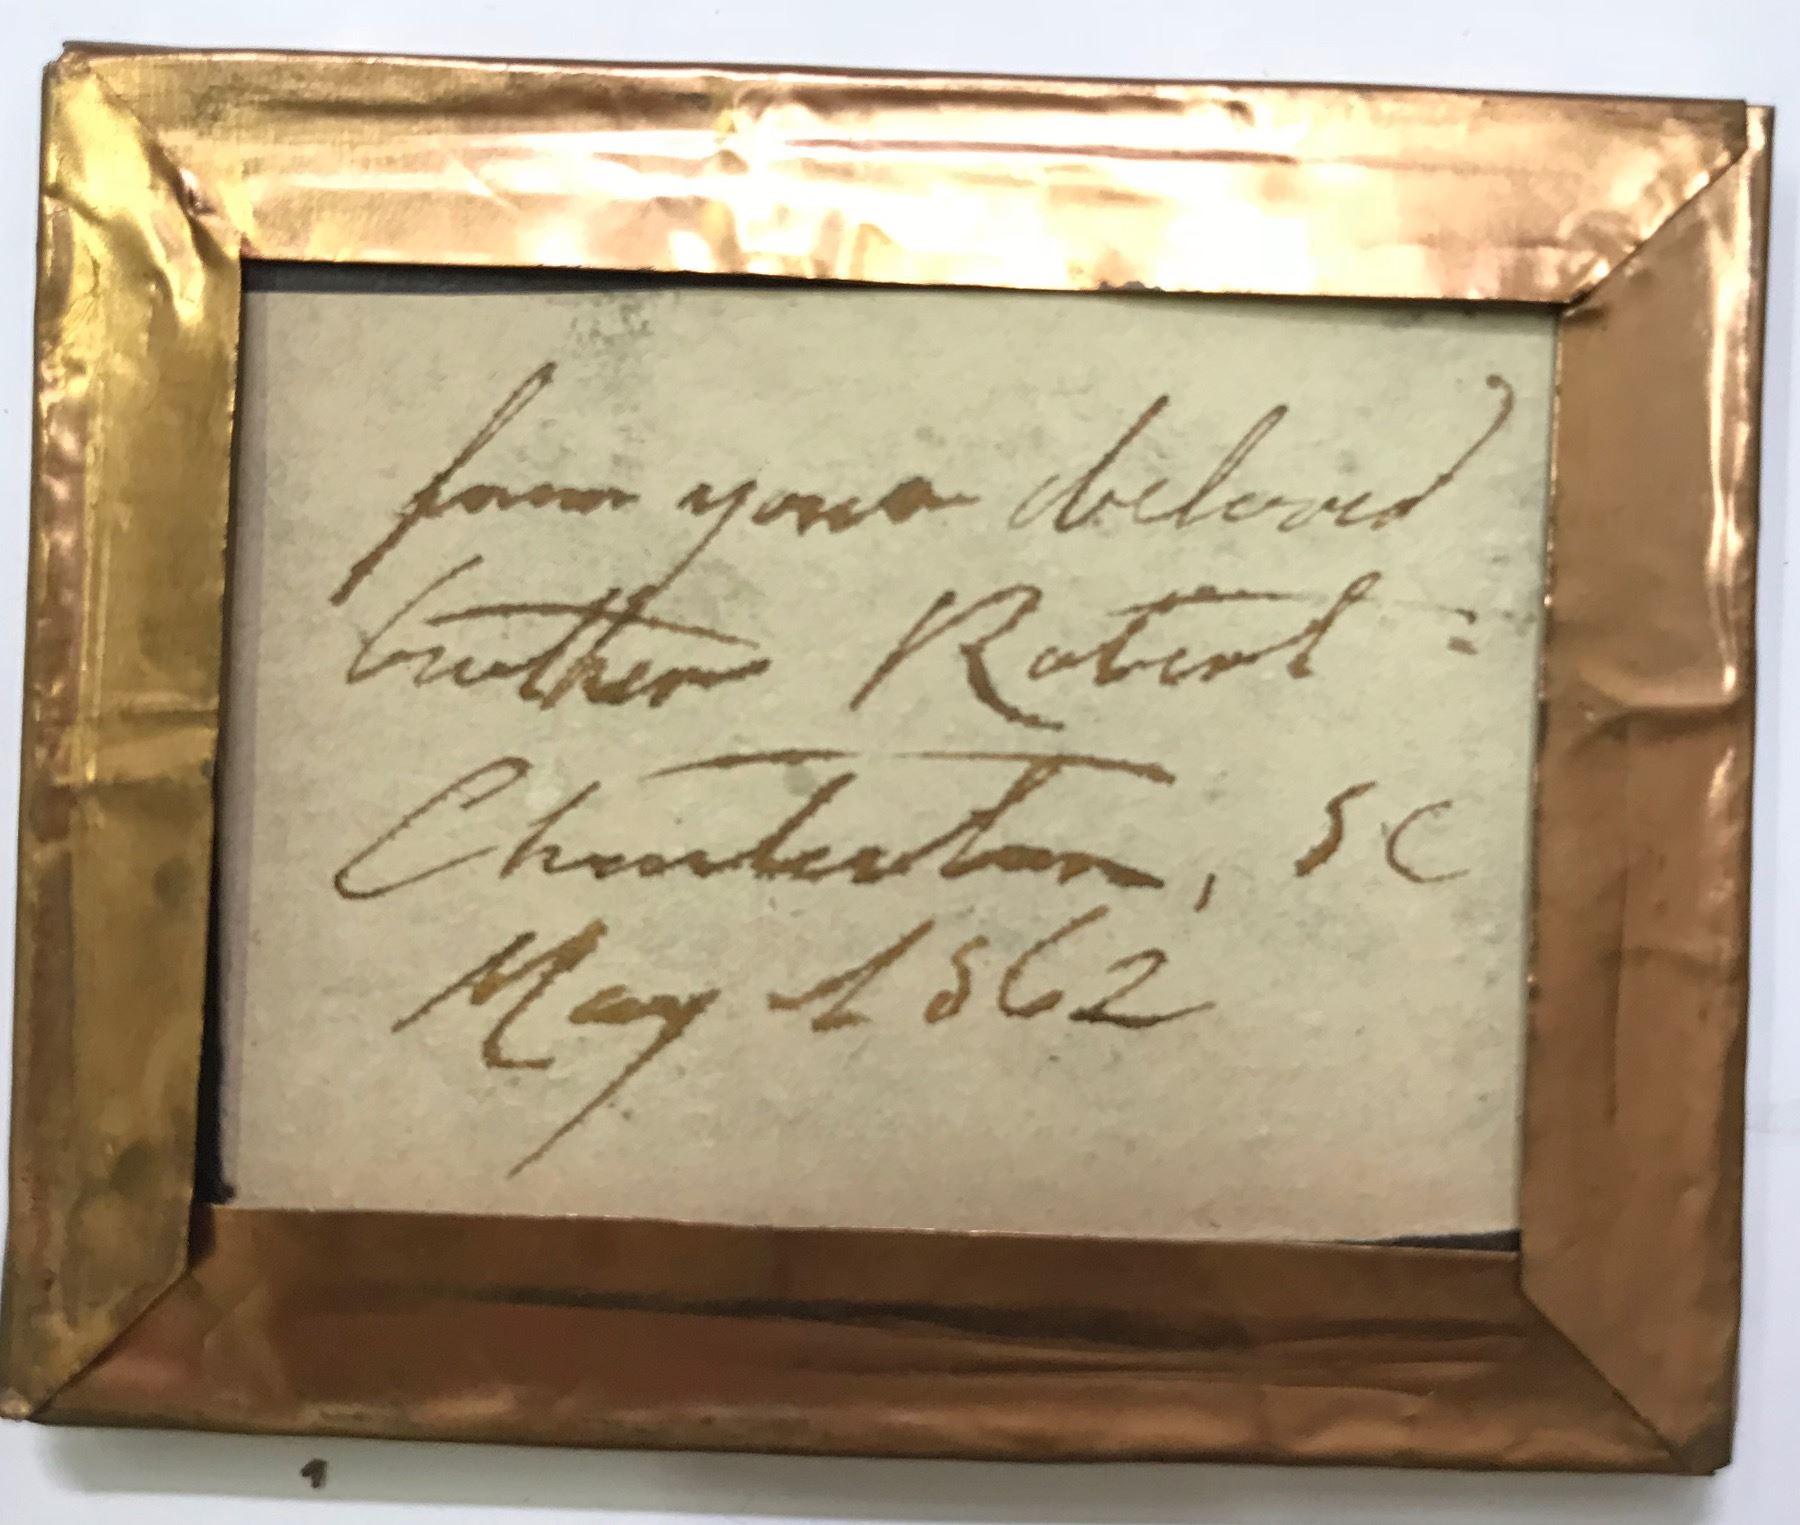 from your beloved
brother Robert -
Charleston, SC
May 1862